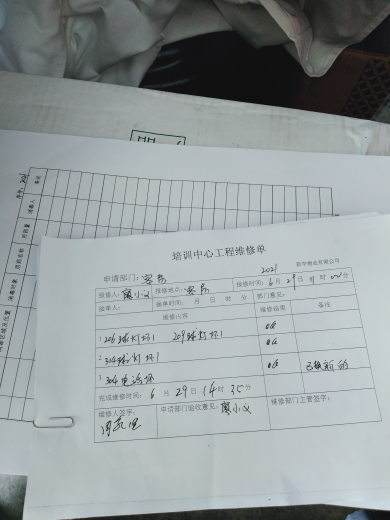 培训中心工程维修单
申请部门：客房 2021 物业有限公司
报修人：廖小义 报修地点：客房 报修时间：6月29日11时00分
接单人： 接单时间： 月 日 时 分 部门意见：
维修内容 维修结果 备注
1 206球灯坏1 209球灯坏1 OK
2 304球灯坏1 OK
3 304电话坏 OK 已换新的
完成维修时间：6月29日14时35分
维修人签字： 申请部门验收意见：廖小义 维修部门主管签字：
备注
消毒人
消毒对象